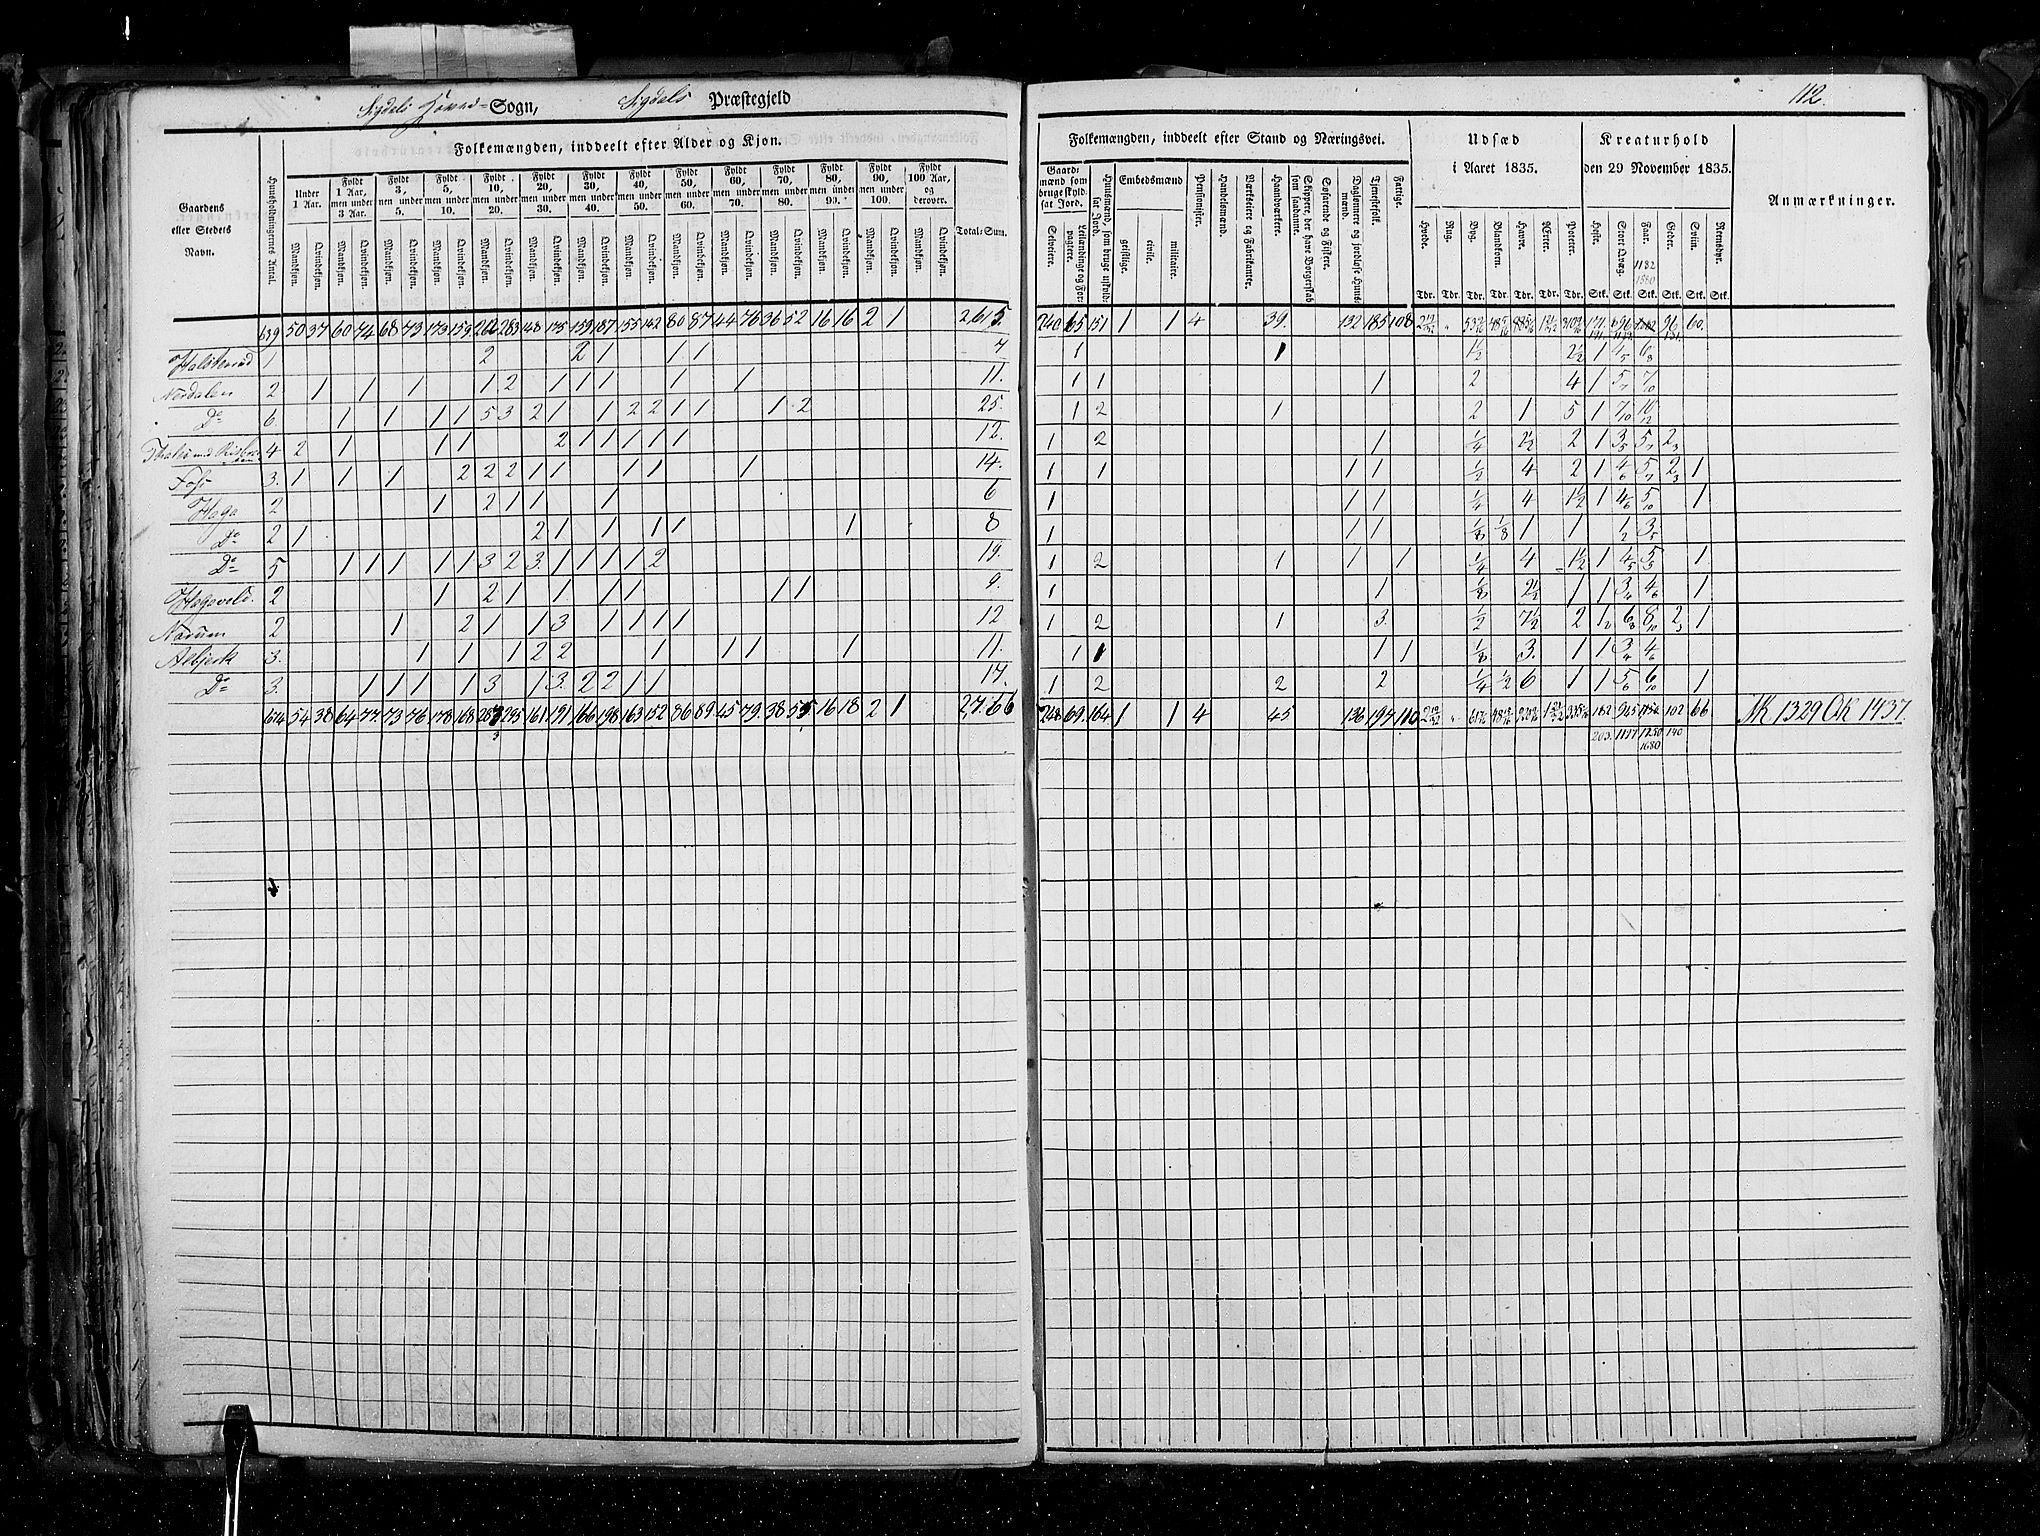 Sigdals Hoved- Sogn, Sigdals Præstegjeld
112.
Folkemængden, inddeelt efter Alder og Kjøn.
Gaardens eller Stedets Navn.
Huusholdningernes Antal.
Under 1 Aar.
Fyldt 1 Aar, men under 3 Aar.
Fyldt 3, men under 5.
Fyldt 5, men under 10.
Fyldt 10, men under 20.
Fyldt 20, men under 30.
Fyldt 30, men under 40.
Fyldt 40, men under 50.
Fyldt 50, men under 60.
Fyldt 60, men under 70.
Fyldt 70, men under 80.
Fyldt 80, men under 90.
Fyldt 90, men under 100.
Fyldt 100 Aar, og derover.
Total-Sum.
Mandkjøn. Qvindekjøn.
Folkemængden, inddeelt efter Stand og Næringsvei.
Gaardmænd som bruge skyldsat Jord.
Selveiere.
Leilændinge og Forpagtere.
Huusmænd, som bruge uskyldsat Jord.
Embedsmænd
geistlige. civile. militaire.
Pensionister.
Handelsmænd.
Værkseiere og Fabrikanter.
Haandværkere.
Skippere, der have Borgerskab som saadanne.
Søfarende og Fiskere.
Daglønnere og jordløse Huusmænd.
Tjenestefolk.
Fattige.
Udsæd i Aaret 1835.
Hvede. Rug. Byg. Blandkorn. Havre. Ærter. Poteter.
Tdr. Tdr. Tdr. Tdr. Tdr. Tdr. Tdr.
Kreaturhold den 29 November 1835.
Heste. Stort Qvæg. Faar. Geder. Sviin. Rensdyr.
1182
1580
Stk. Stk. Stk. Stk. Stk. Stk.
Anmærkninger.
639 50 37 60 74 68 73 173 159 283 148 175 159 187 155 142 80 87 44 76 36 52 16 16 2 1 2615. 240 65 151 1 1 4 39. 132 185 108 96 60.
1 2 2 1 1 1 7 1 1 1½ 2½ 1 4/5 6/8
Nerdalen 2 1 1 1 1 2 1 1 1 1 1 11. 1 1 1 2 4 1 5/7 7/10
Do 6. 1 1 1 1 5 3 2 1 1 2 2 1 1 1 2 25. 1 2 1 2 1 5 1 7/10 10/12
4 2 1 1 1 2 1 1 1 1 1 12. 1 2 1 ¼ 2½ 2 1 3/5 5/7 2/3
Foss 3. 1 1 1 2 2 2 1 1 1 1 1 14. 1 1 1 1 ½ 4 2 1 4/6 5/7 2/3 1
Haga 2 1 2 1 1 1 6 1 1 1 ¼ 4 1½ 1 4/6 5/10 1
Do 2 1 2 1 1 1 1 1 8 1 1 1 ⅛ ⅛ 1 1 1/2 3/5
Do 5 1 1 1 1 1 3 2 3. 1 1 1 1 2 19. 1 2 1 1 1 ¼ 4 1½ 1 4/5 5/5 1.
Hagaveld. 2 1 2 1 1 1 1 1 1 9. 1 1 ⅛ 2½ 1 1 3/4 4/6 1
Narum 2 1 2 1 1 3 1 1 1 1 12 1 2 1 3. ½ 7½ 2 1/2 6/8 8/10 2/3 1
Aslijerk 3. 1 1 1 2 2 1 1 1 1 11. 1 1 1 1 ⅛ 3. 1 1 3/4 4/6
Do 3. 1 1 1 1 3 1 3. 2 2 1 1 17. 1 2 2 2 ¼ ½ 6 1 1 5/6 6/10 1
674 54 38 64 77 73 76 178 168 283 295 161 191 166 198 163 152 86 89 45 79. 38 55 16 18 2 1 2,766 248 69 164 1 1 4 45 136 197 110 182 102 66 Mk 1329 Qk 1437.
203. 1197 1250 140
1680